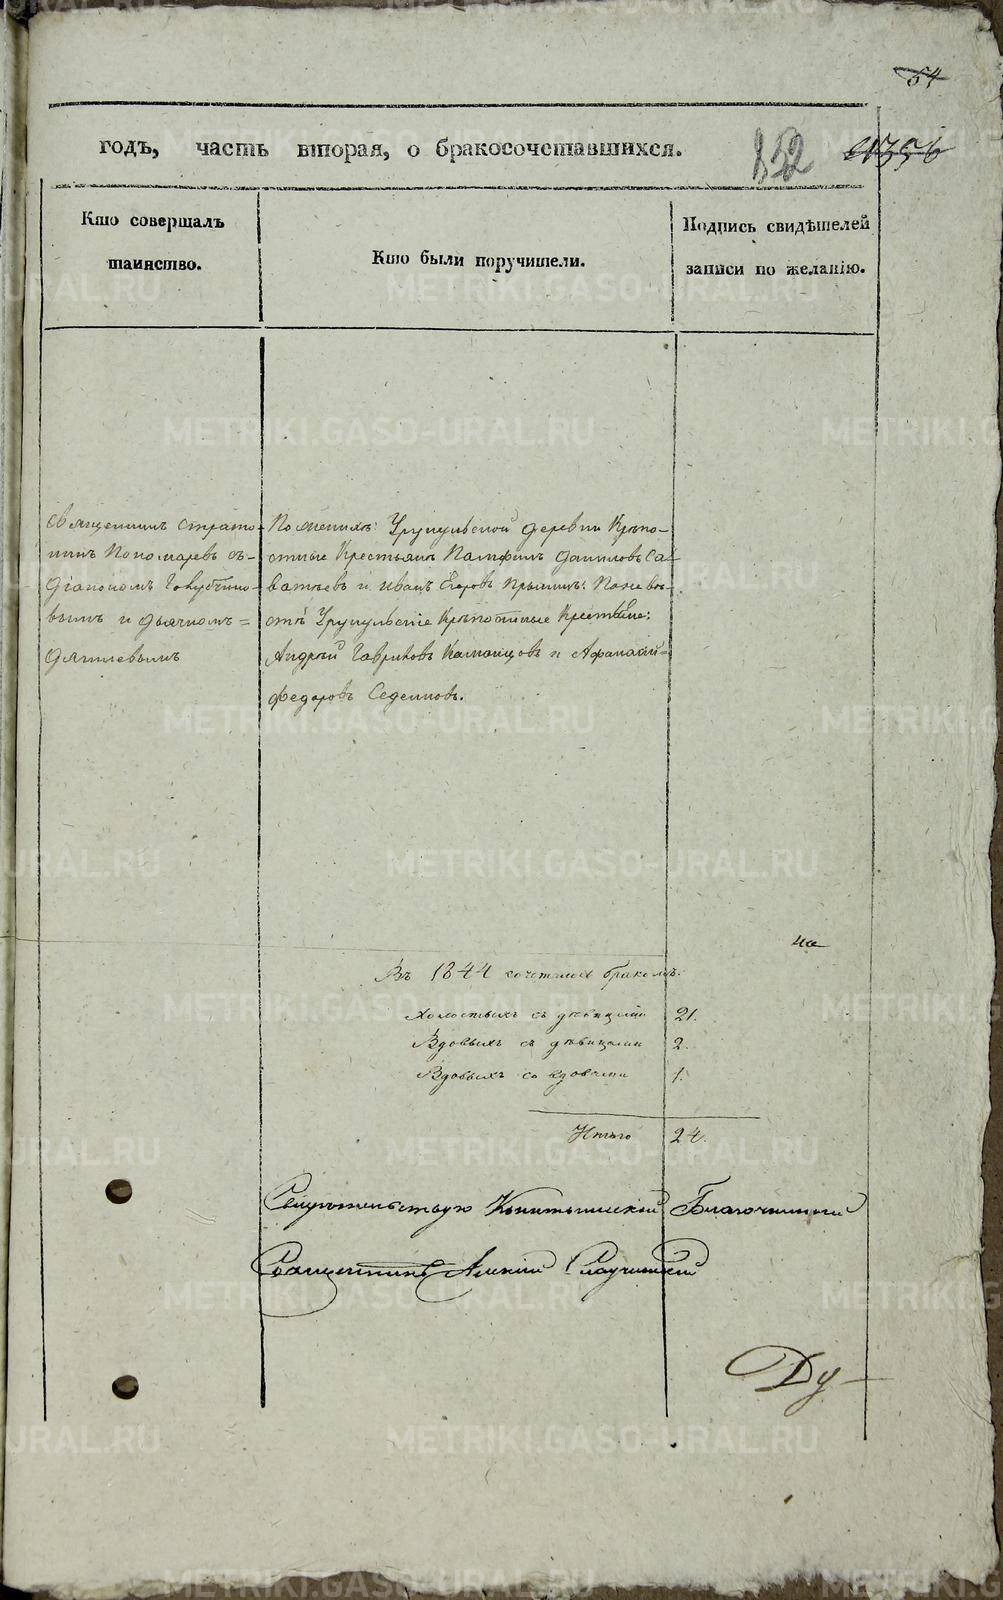 54
годъ, часть вторая, о бракосочетавшихся.
852 1356
Кто совершалъ
таинство.
Кто были поручители.
Подпись свидѣтелей
записи по желанію.
Священникъ Страто-
никъ Пономаревъ съ-
Діакономъ
вымъ и дьячкомъ=
По женихѣ: Урукульской деревни Крѣпо-
стные Крестьяне Памфилъ Даниловъ Са-
ватѣевъ и иванъ Егоровъ По невѣ-
стѣ Урукульскіе Крѣпостные Крестьяне:
Андрей Гавриловъ и Афанасій
Федоровъ Седенковъ.
Въ 1844 сочеталось бракомъ:
Холостыхъ съ дѣвицами 21.
Вдовыхъ съ дѣвицами 2.
Вдовыхъ со вдовами 1.
Итого 24.
Свидѣтельствую Благочинный
Священникъ
Ду-
METRIKI.GASO-URAL.RU